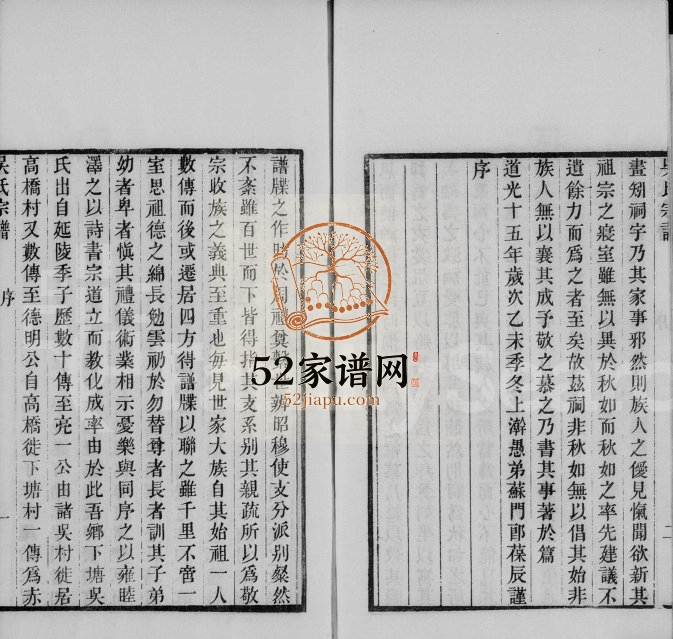 畫矧祠宇乃其家事邪然則族人之優見愾聞欲新其
祖宗之寢室雖無以異於秋如而秋如之率先建議不
遺餘力而爲之者至矣故茲祠非秋如無以倡其始非
族人無以襄其成予敬之慕之乃書其事著於篇
道光十五年歲次乙未季冬上澣愚弟蘇門郎葆辰謹
序
譜牒之作昉於周禮奠繫辨昭穆使支分派別粲然
不紊雖百世而下皆得指其支系別其親疏所以爲敬
宗收族之義典至重也每見世家大族自其始祖一人
數傳而後或遷居四方得譜牒以聯之雖千里不啻一
室思祖德之綿長勉雲礽於勿替尊者長者訓其子弟
幼者卑者愼其禮儀術業相示憂樂與同序之以雍睦
澤之以詩書宗道立而敎化成率由於此吾鄉下塘吳
氏出自延陵季子歷數十傳至亮一公由諸吳村徙居
高橋村又數傳至德明公自高橋徙下塘村一傳爲赤
吳氏宗譜
序
一
吳氏宗譜
序
二
52家谱网
52jiapu.com